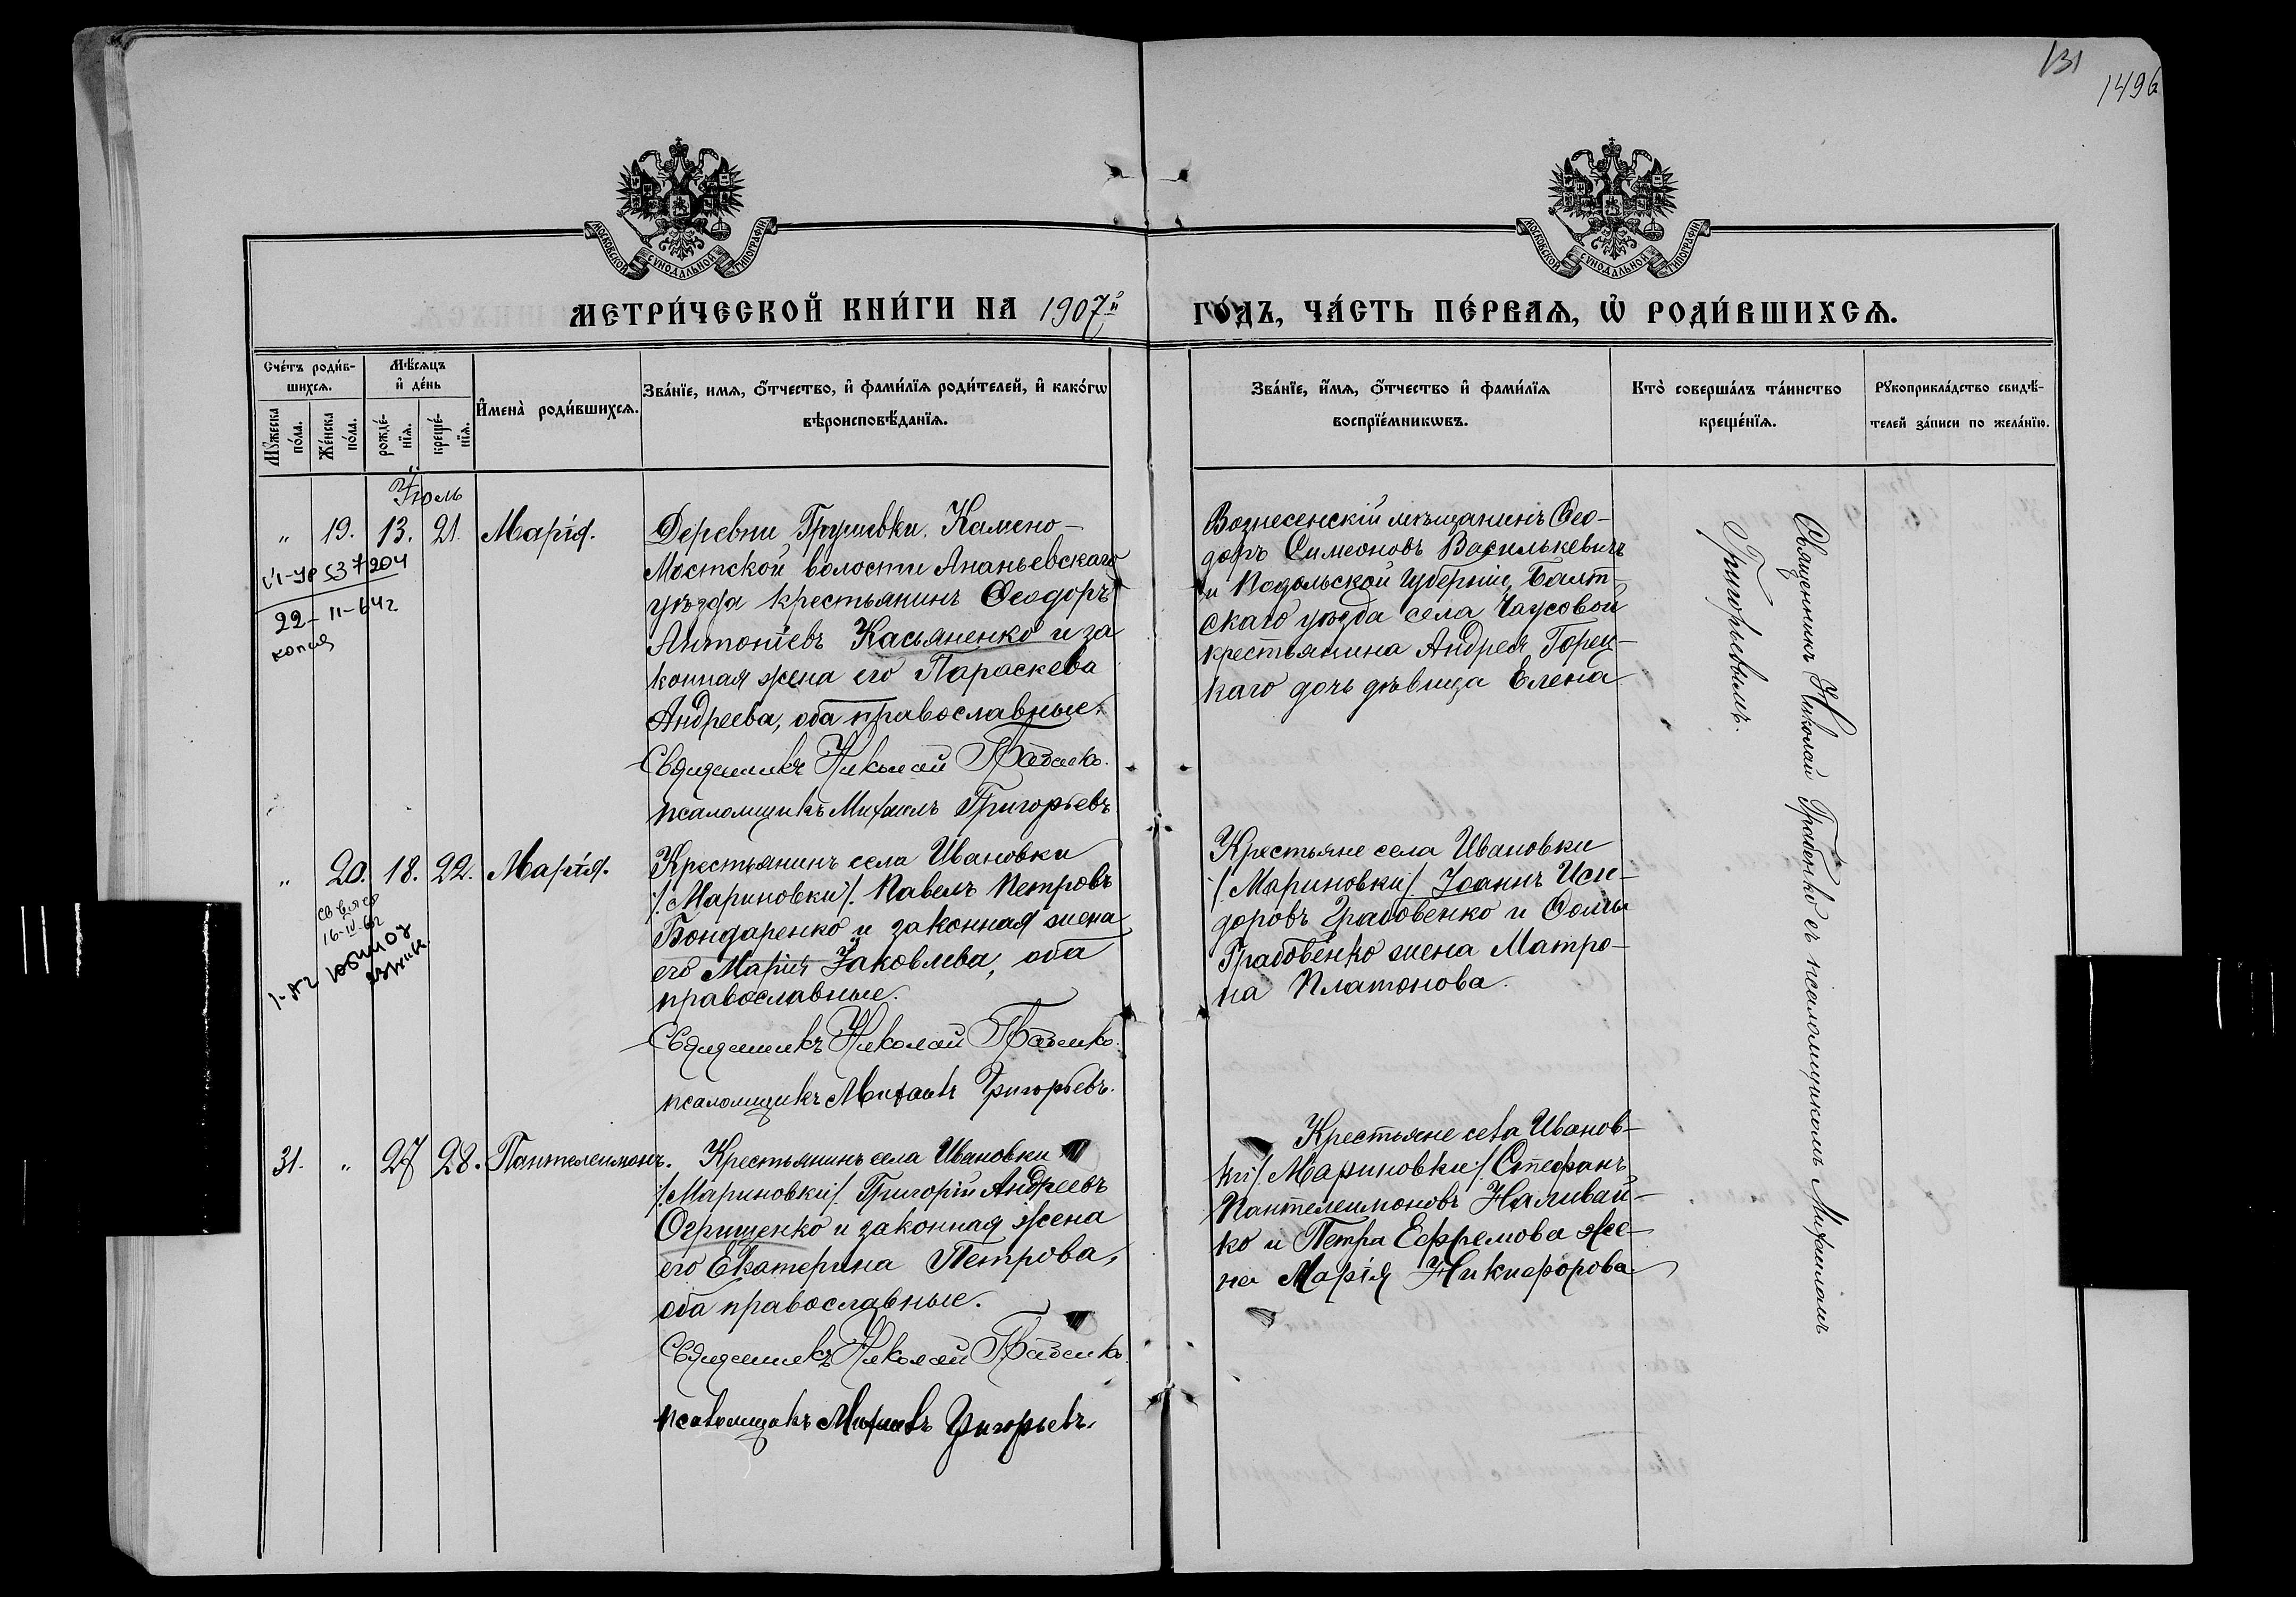 131
1496
МОСКОВСКОЙ СѴНОДАЛЬНОЙ ТИПОГРАФІИ.
МОСКОВСКОЙ СѴНОДАЛЬНОЙ ТИПОГРАФІИ.
МЕТРИ́ЧЕСКОЙ КНИ́ГИ НА 1907й
ГО́ДЪ, ЧА́СТЬ ПЕ́РВАѦ, Ѡ҆ РОДИ́ВШИХСѦ.
Сче́тъ роди́в-
шихсѧ.
Мѣ́сѧцъ
и҆ де́нь
Мꙋжеска
по́ла.
Же́нска
по́ла.
рожде́-
нїѧ.
креще́-
нїѧ.
И҆мена̀ роди́вшихсѧ.
Зва́нїе, имѧ, ѻ҆́тчество, и҆ фами́лїѧ роди́телей, и҆ како́гѡ
вѣроисповѣ́данїѧ.
Зва́нїе, и҆́мѧ, ѻ҆́тчество и҆ фами́лїѧ
воспрїе́мникѡвъ.
Кто̀ соверша́лъ та́инство
креще́нїѧ.
Рꙋкоприкла́дство свидѣ́-
телей за́писи по жела́нїю.
Іюль
" 19. 13. 21. Марія.
22-II-64г
копия
Деревни Грушевки, Камено-
Мостской волости Ананьевскаго
уѣзда крестьянинъ Ѳеодоръ
Антоніевъ Касьяненко и за
конная жена его Параскева
Андреева, оба православные.
Священникъ Николай Грабенко.
псаломщикъ Михаилъ Григорьевъ
Вознесенскій мѣщанинъ Ѳео-
доръ Симеоновъ Василькевичъ
и Подольской губерніи, Балт-
скаго уѣзда села Чаусовой
крестьянина Андрея Горец-
каго дочь дѣвица Елена
Священникъ Николай Грабенко съ псаломщикомъ Михаиломъ
Григорьевымъ.
" 20. 18. 22. Марія.
16-IV-62
Крестьянинъ села Ивановки
/:Мариновки:/ Павелъ Петровъ
Бондаренко и законная жена
его Марія Іаковлева, оба
православные.
Священникъ Николай Грабенко.
псаломщикъ Михаилъ Григорьевъ.
Крестьяне села Ивановки
/:Мариновки/. Іоаннъ Иси-
доровъ Грабовенко и Ѳомы
Грабовенко жена Матро-
на Платонова.
31. " 27 28. Пантелеимонъ.
Крестьянинъ села Ивановки
/:Мариновки/. Григорій Андреевъ
Огрищенко и законная жена
его Екатерина Петрова,
оба православные.
Священникъ Николай Грабенко.
псаломщикъ Михаилъ Григорьевъ.
Крестьяне села Иванов-
ки /:Мариновки:/ Стефанъ
Пантелеимоновъ Наливай-
ко и Петра Ефремова же-
на Марія Никифорова